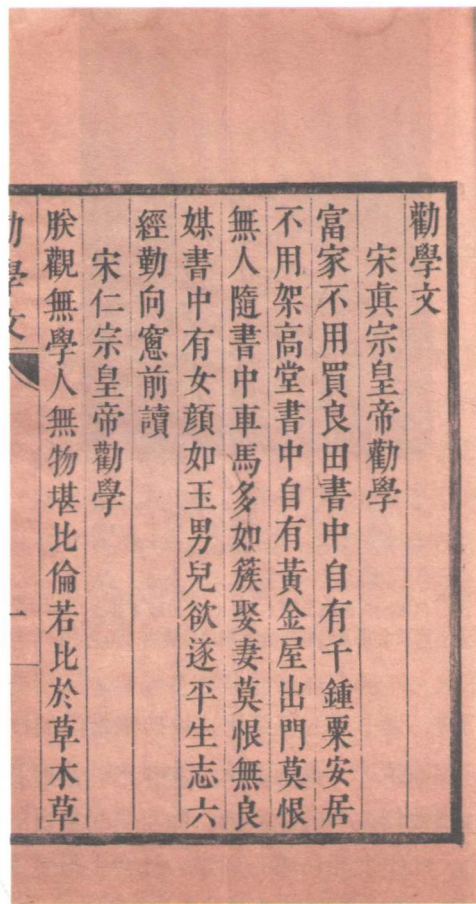 勸學文
宋眞宗皇帝勸學
富家不用買良田書中自有千鍾粟安居
不用架高堂書中自有黃金屋出門莫恨
無人隨書中車馬多如簇娶妻莫恨無良
媒書中有女顏如玉男兒欲遂平生志六
經勤向窻前讀
宋仁宗皇帝勸學
朕觀無學人無物堪比倫若比於草木草
勸學文
一